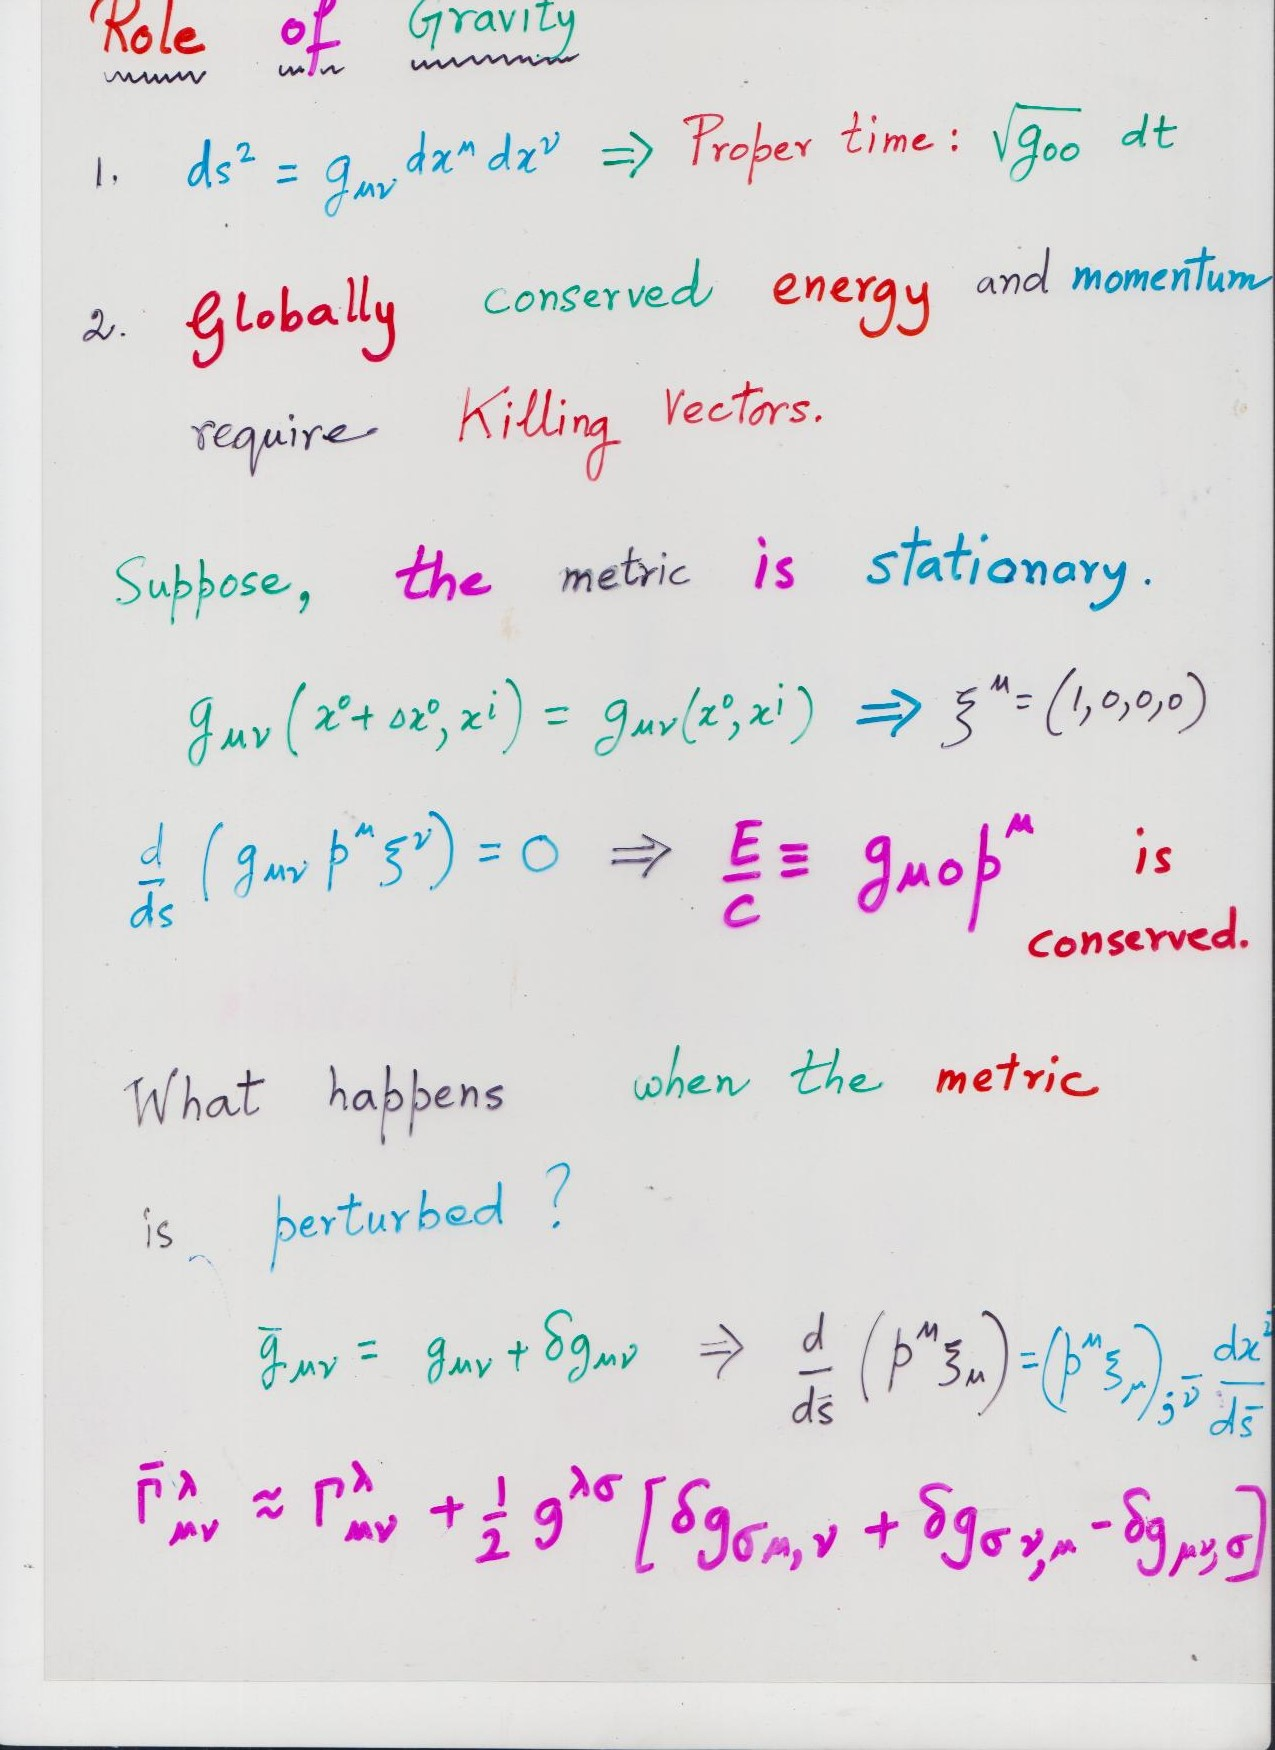 Role of Gravity
1. ds² = g_μν dx^μ dx^ν ⇒ Proper time: √g₀₀ dt
2. Globally conserved energy and momentum
require Killing Vectors.
Suppose, the metric is stationary.
g_μν (x⁰ + Δx⁰, xⁱ) = g_μν (x⁰, xⁱ) ⇒ ξ^μ = (1,0,0,0)
d/ds (g_μν p^μ ξ^ν) = 0 ⇒ E/c ≡ g_μ0 p^μ is
conserved.
What happens when the metric
is perturbed ?
ḡ_μν = g_μν + δg_μν ⇒ d/ds̄ (p^μ ξ_μ) = (p^μ ξ_μ)_;ν̄ dx^ν̄/ds̄
Γ̄^λ_μν ≈ Γ^λ_μν + 1/2 g^λσ [δg_σμ,ν + δg_σν,μ - δg_μν,σ]